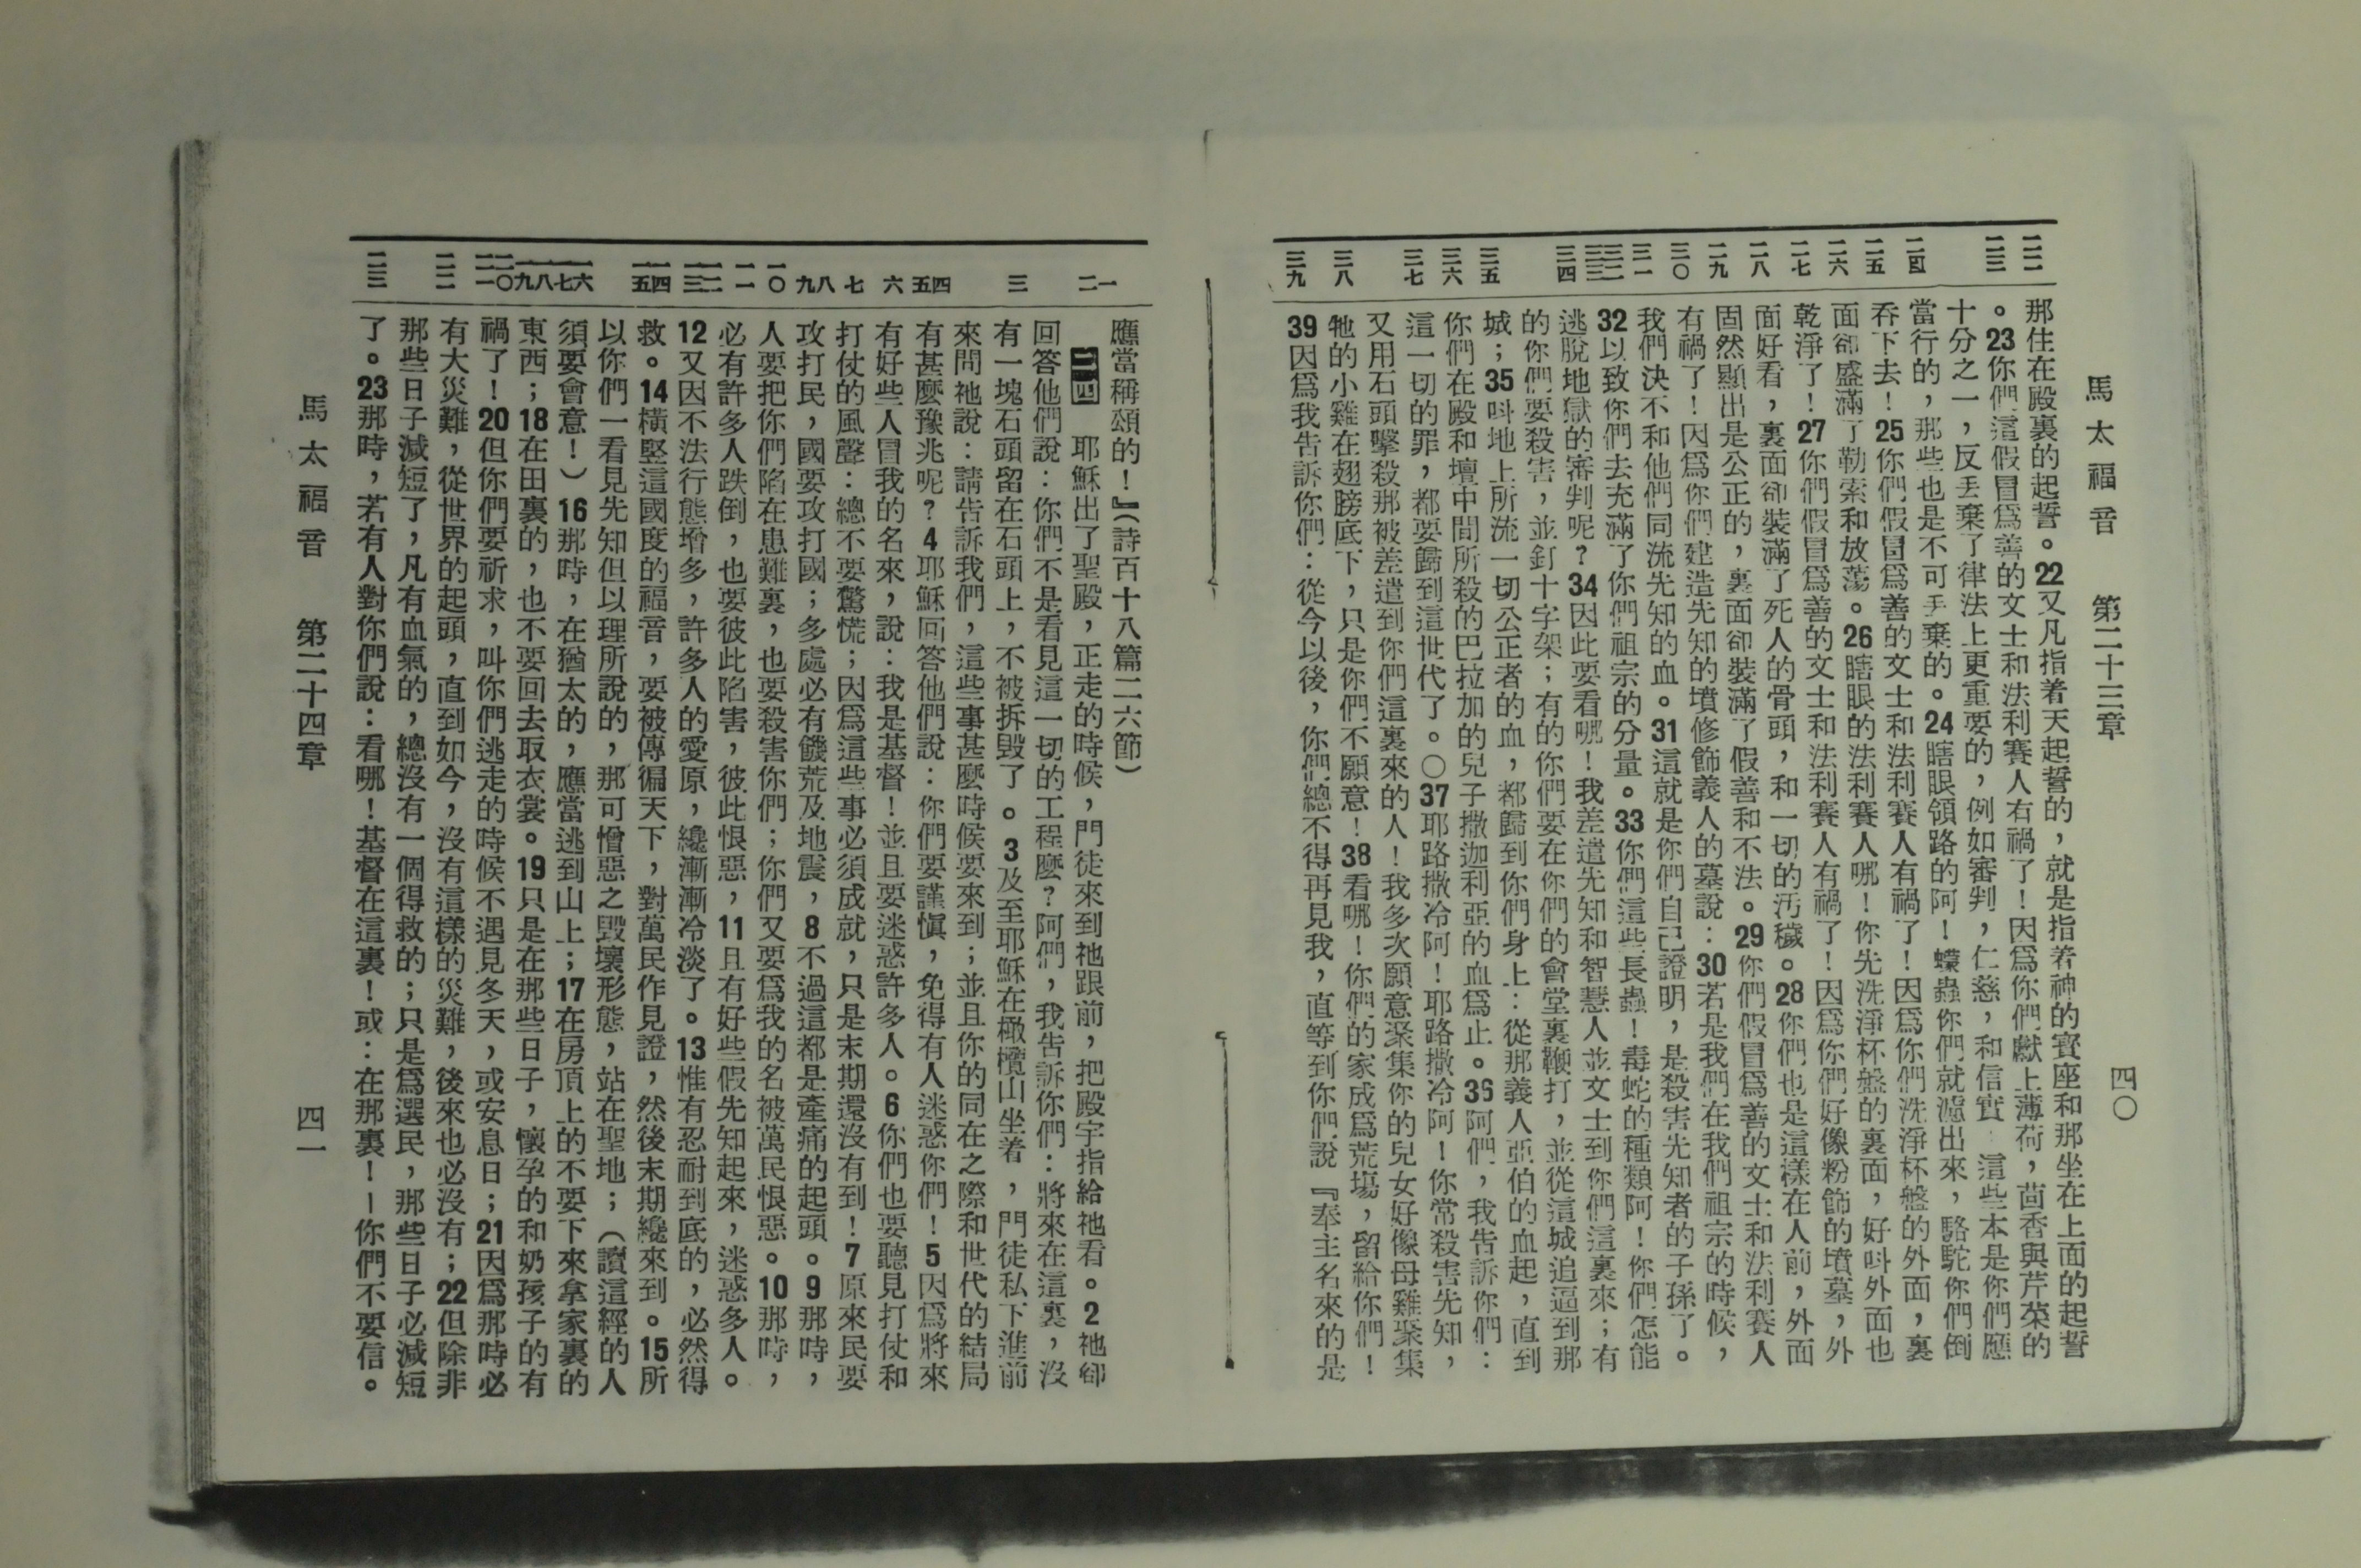 馬太福音 第二十三章 四〇
二二 二三 二四 二五 二六 二七 二八 二九 三〇 三一 三二 三三 三四 三五 三六 三七 三八 三九
那住在殿裏的起誓。22又凡指着天起誓的，就是指着神的寶座和那坐在上面的起誓
。23你們這假冒爲善的文士和法利賽人有禍了！因爲你們獻上薄荷，茴香與芹菜的
十分之一，反丟棄了律法上更重要的，例如審判，仁慈，和信實；這些本是你們應
當行的，那些也是不可丟棄的。24瞎眼領路的阿！蠓蟲你們就濾出來，駱駝你們倒
吞下去！25你們假冒爲善的文士和法利賽人有禍了！因爲你們洗淨杯盤的外面，裏
面卻盛滿了勒索和放蕩。26瞎眼的法利賽人哪！你先洗淨杯盤的裏面，好叫外面也
乾淨了！27你們假冒爲善的文士和法利賽人有禍了！因爲你們好像粉飾的墳墓，外
面好看，裏面卻裝滿了死人的骨頭，和一切的汚穢。28你們也是這樣在人前，外面
固然顯出是公正的，裏面卻裝滿了假善和不法。29你們假冒爲善的文士和法利賽人
有禍了！因爲你們建造先知的墳修飾義人的墓說：30若是我們在我們祖宗的時候，
我們決不和他們同流先知的血。31這就是你們自己證明，是殺害先知者的子孫了。
32以致你們去充滿了你們祖宗的分量。33你們這些長蟲！毒蛇的種類阿！你們怎能
逃脫地獄的審判呢？34因此要看哪！我差遣先知和智慧人並文士到你們這裏來；有
的你們要殺害，並釘十字架；有的你們要在你們的會堂裏鞭打，並從這城追逼到那
城；35叫地上所流一切公正者的血，都歸到你們身上：從那義人亞伯的血起，直到
你們在殿和壇中間所殺的巴拉加的兒子撒迦利亞的血爲止。36阿們，我告訴你們：
這一切的罪，都要歸到這世代了。〇37耶路撒冷阿！耶路撒冷阿！你常殺害先知，
又用石頭擊殺那被差遣到你們這裏來的人！我多次願意聚集你的兒女好像母雞聚集
牠的小雞在翅膀底下，只是你們不願意！38看哪！你們的家成爲荒場，留給你們！
39因爲我告訴你們：從今以後，你們總不得再見我，直等到你們說『奉主名來的是
一 二 三 四 五 六 七 八 九 一〇 一一 一二 一三 一四 一五 一六 一七 一八 一九 二〇 二一 二二 二三
應當稱頌的！』（詩百十八篇二六節）
二四 耶穌出了聖殿，正走的時候，門徒來到祂跟前，把殿宇指給祂看。2祂卻
回答他們說：你們不是看見這一切的工程麼？阿們，我告訴你們：將來在這裏，沒
有一塊石頭留在石頭上，不被拆毀了。3及至耶穌在橄欖山坐着，門徒私下進前
來問祂說：請告訴我們，這些事甚麼時候要來到；並且你的同在之際和世代的結局
有甚麼豫兆呢？4耶穌回答他們說：你們要謹愼，免得有人迷惑你們！5因爲將來
有好些人冒我的名來，說：我是基督！並且要迷惑許多人。6你們也要聽見打仗和
打仗的風聲：總不要驚慌；因爲這些事必須成就，只是末期還沒有到！7原來民要
攻打民，國要攻打國；多處必有饑荒及地震，8不過這都是產痛的起頭。9那時，
人要把你們陷在患難裏，也要殺害你們；你們又要爲我的名被萬民恨惡。10那時，
必有許多人跌倒，也要彼此陷害，彼此恨惡，11且有好些假先知起來，迷惑多人。
12又因不法行態增多，許多人的愛原，纔漸漸冷淡了。13惟有忍耐到底的，必然得
救。14橫竪這國度的福音，要被傳徧天下，對萬民作見證，然後末期纔來到。15所
以你們一看見先知但以理所說的，那可憎惡之毀壞形態，站在聖地；（讀這經的人
須要會意！）16那時，在猶太的，應當逃到山上；17在房頂上的不要下來拿家裏的
東西；18在田裏的，也不要回去取衣裳。19只是在那些日子，懷孕的和奶孩子的有
禍了！20但你們要祈求，叫你們逃走的時候不遇見冬天，或安息日；21因爲那時必
有大災難，從世界的起頭，直到如今，沒有這樣的災難，後來也必沒有；22但除非
那些日子減短了，凡有血氣的，總沒有一個得救的；只是爲選民，那些日子必減短
了。23那時，若有人對你們說：看哪！基督在這裏！或：在那裏！—你們不要信。
馬太福音 第二十四章 四一